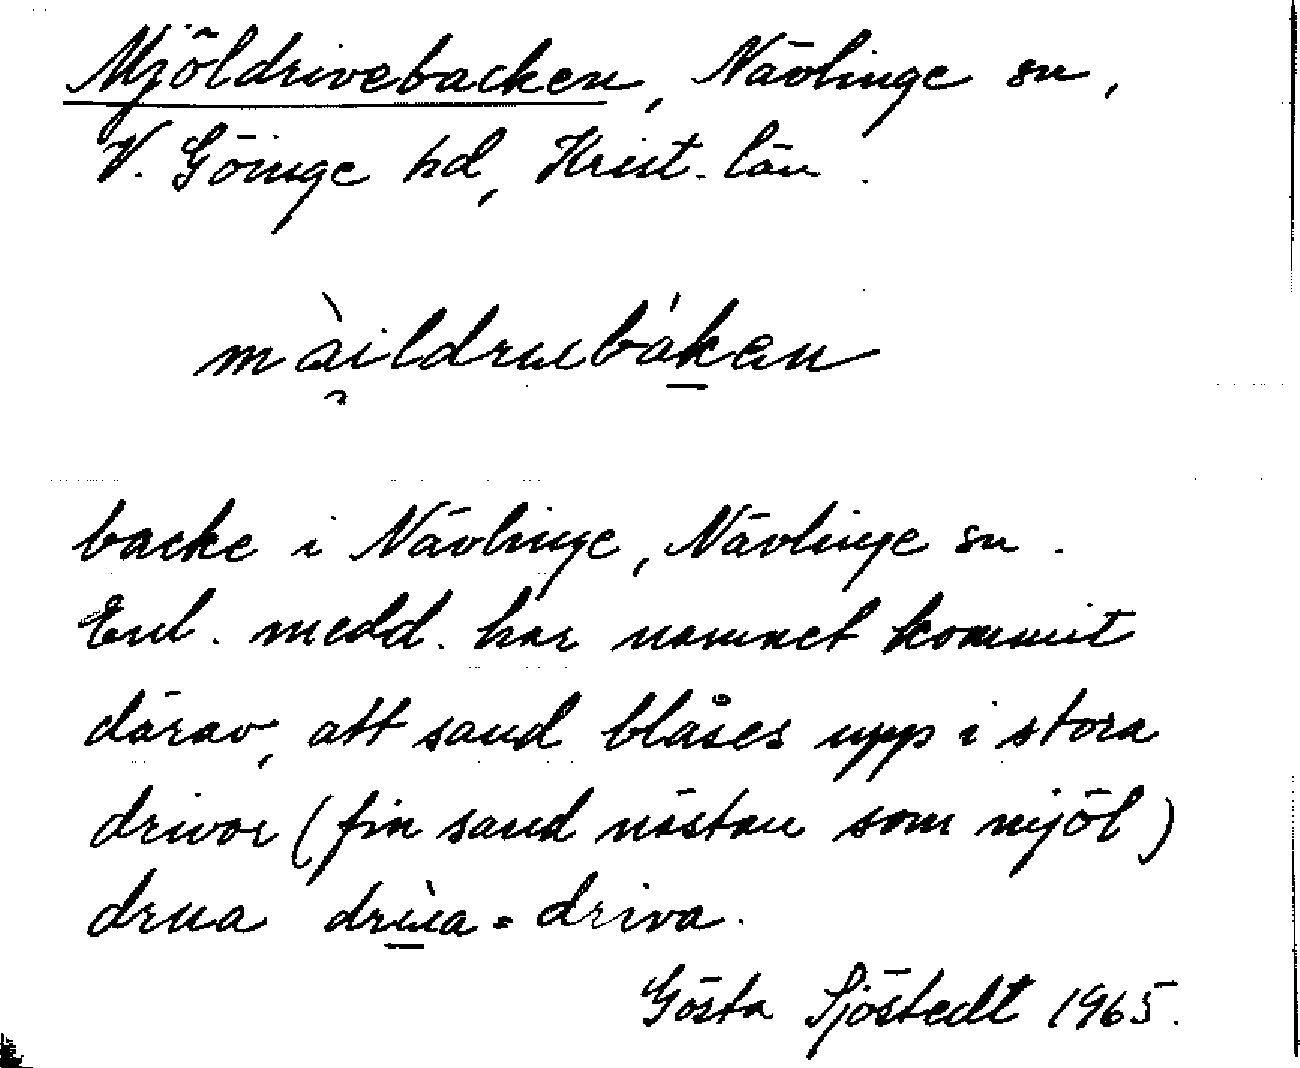 Mjöldrivebacken, Nävlinge sn,
V. Göinge hd, Krist. län.
màildruebáken
backe i Nävlinge, Nävlinge sn.
Enl. medd. har namnet kommit
därav, att sand blåses upp i stora
drivor (fin sand nästan som mjöl)
drua drùa = driva.
Gösta Sjöstedt 1965.